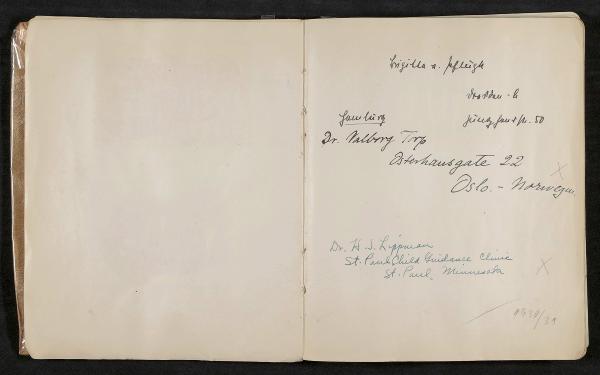 Brigitta
Dresden
Hamburg
Dr. Valborg Torp
Osterhausgate 22
Oslo. - Norwegen.
Dr. H. S. Lippman
St. Paul Child Guidance Clinic
St. Paul, Minnesota
1930/31